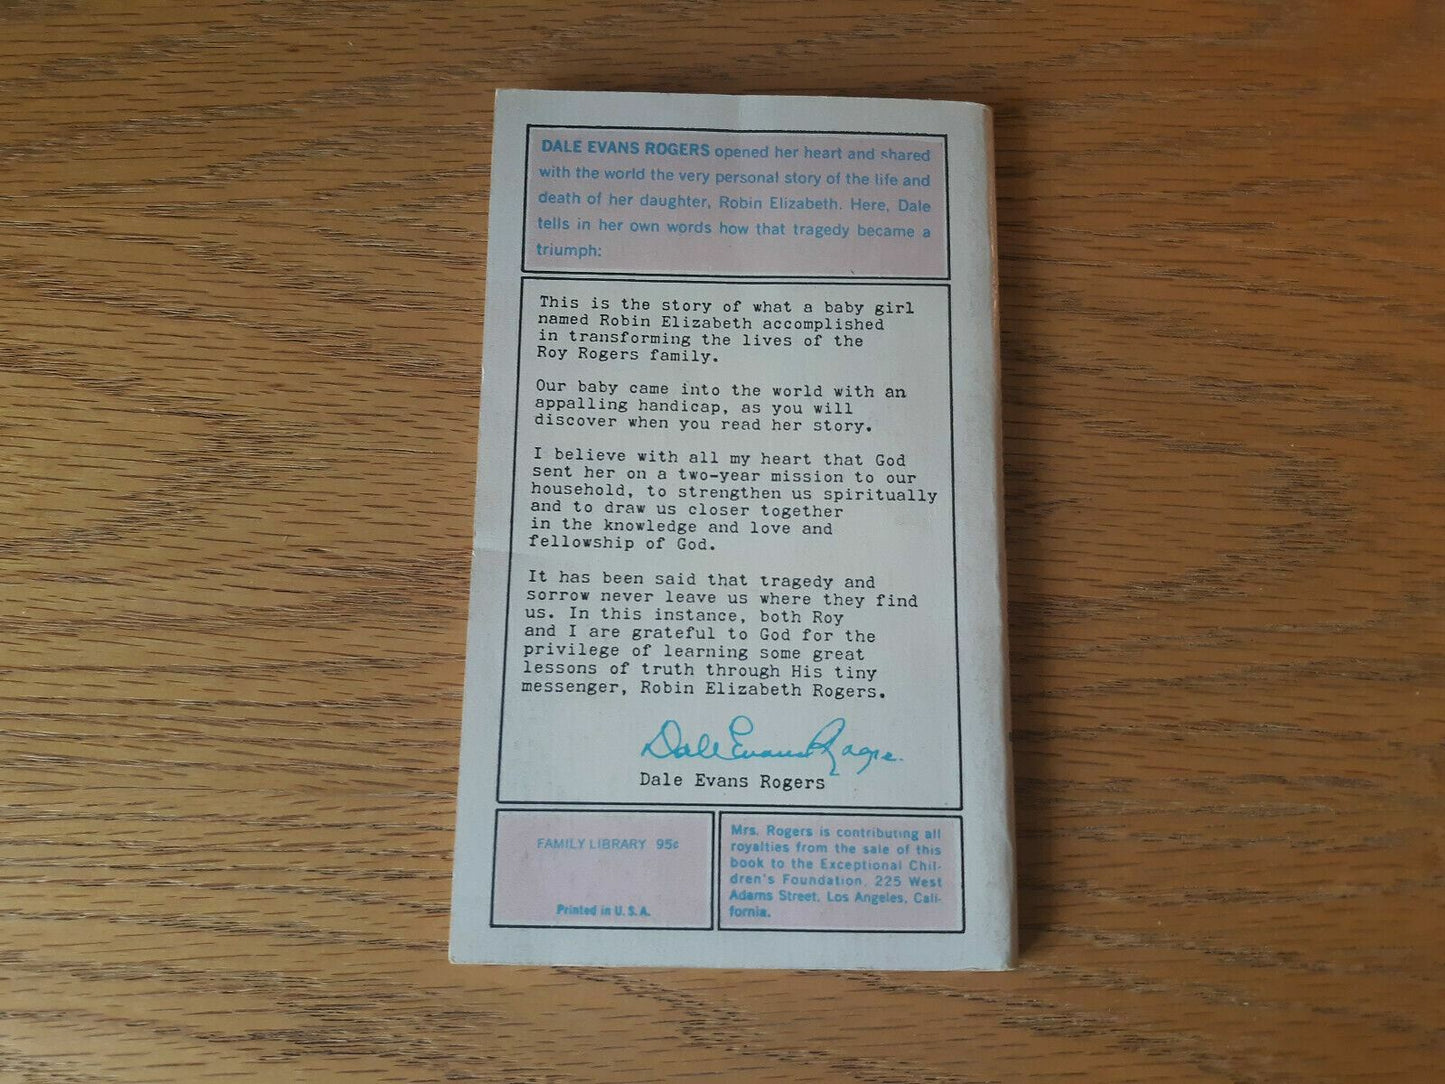 DALE EVANS ROGERS opened her heart and shared
with the world the very personal story of the life and
death of her daughter, Robin Elizabeth. Here, Dale
tells in her own words how that tragedy became a
triumph:
This is the story of what a baby girl
named Robin Elizabeth accomplished
in transforming the lives of the
Roy Rogers family.
Our baby came into the world with an
appalling handicap, as you will
discover when you read her story.
I believe with all my heart that God
sent her on a two-year mission to our
household, to strengthen us spiritually
and to draw us closer together
in the knowledge and love and
fellowship of God.
It has been said that tragedy and
sorrow never leave us where they find
us. In this instance, both Roy
and I are grateful to God for the
privilege of learning some great
lessons of truth through His tiny
messenger, Robin Elizabeth Rogers.
Dale Evans Rogers
Dale Evans Rogers
FAMILY LIBRARY 95¢
Printed in U. S. A.
Mrs. Rogers is contributing all
royalties from the sale of this
book to the Exceptional Chil-
dren's Foundation, 225 West
Adams Street, Los Angeles, Cali-
fornia.